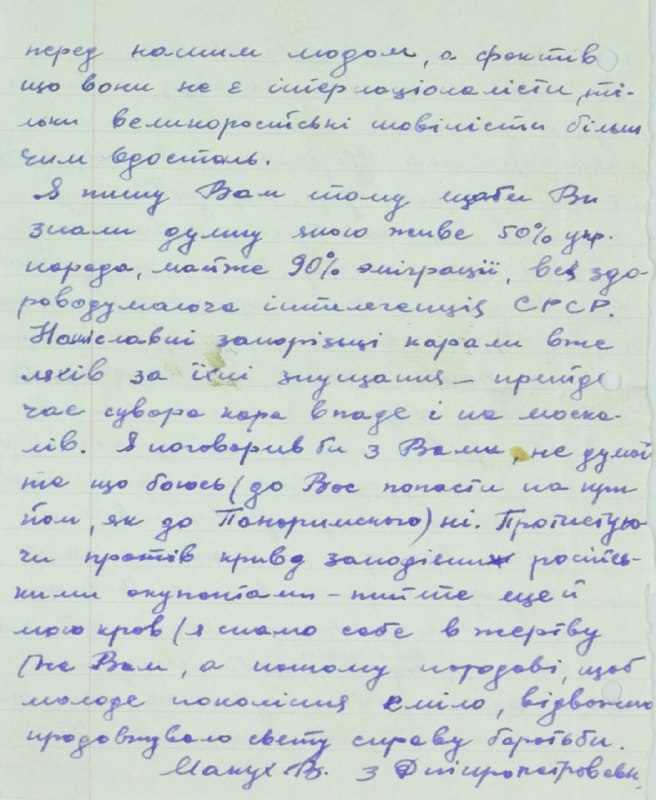 перед нашим людом, а фактів
що вони не є інтернаціоналісти, ті-
льки великоросійські шовіністи більш
чим вдосталь.
Я пишу Вам тому щоби Ви
знали думку якою живе 50% укр.
народа, майже 90% еміграції, вся здо-
роводумаюча інтелегенція СРСР.
Наші славні запорізці карали вже
ляхів за їхні знущання – прийде
час сувора кара впаде і на моска-
лів. Я поговорив би з Вами, не думай
те що боюсь (до Вас попасти на при-
йом, як до Папи римського) ні. Протистую-
чи протів кривд заподіяних російсь-
кими окупантами – пийте ще й
мою кров (я ставю себе в жертву
не Вам, а нашому народові, щоб
молоде покоління сміло, відважно
продовжувало святу справу боротьби.
Манух В. з Дніпропетровськ